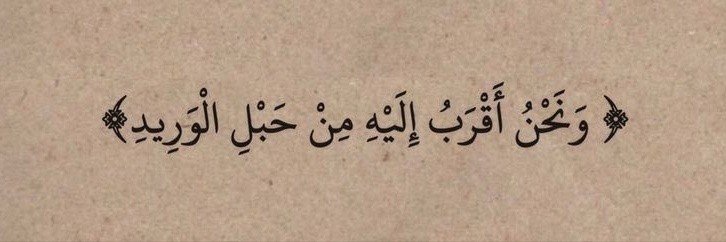 ﴿ وَنَحْنُ أَقْرَبُ إِلَيْهِ مِنْ حَبْلِ الْوَرِيدِ ﴾